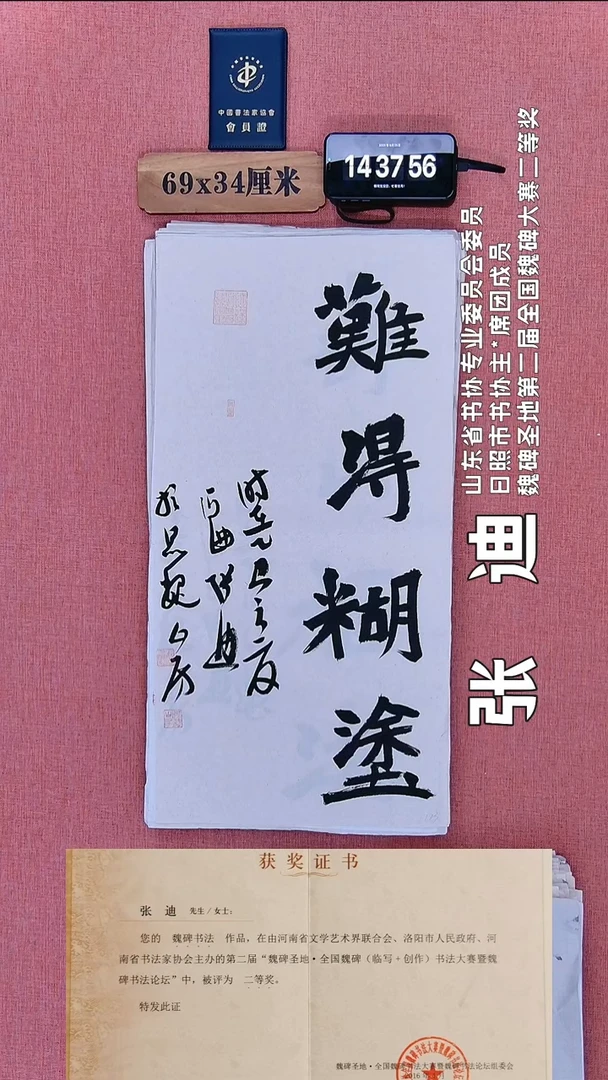 中國書法家協會
會員證
69x34厘米
14 37 56
難得糊塗
山东省书协专业委员会委员
日照市书协主*席团成员
魏碑圣地第二届全国魏碑大赛二等奖
张 迪
获奖证书
张 迪 先生/女士:
您的 魏碑书法 作品,在由河南省文学艺术界联合会、洛阳市人民政府、河
南省书法家协会主办的第二届“魏碑圣地·全国魏碑(临写+创作)书法大赛暨魏
碑书法论坛”中,被评为 二等奖。
特发此证
魏碑圣地·全国魏碑书法大赛暨魏碑书法论坛组委会